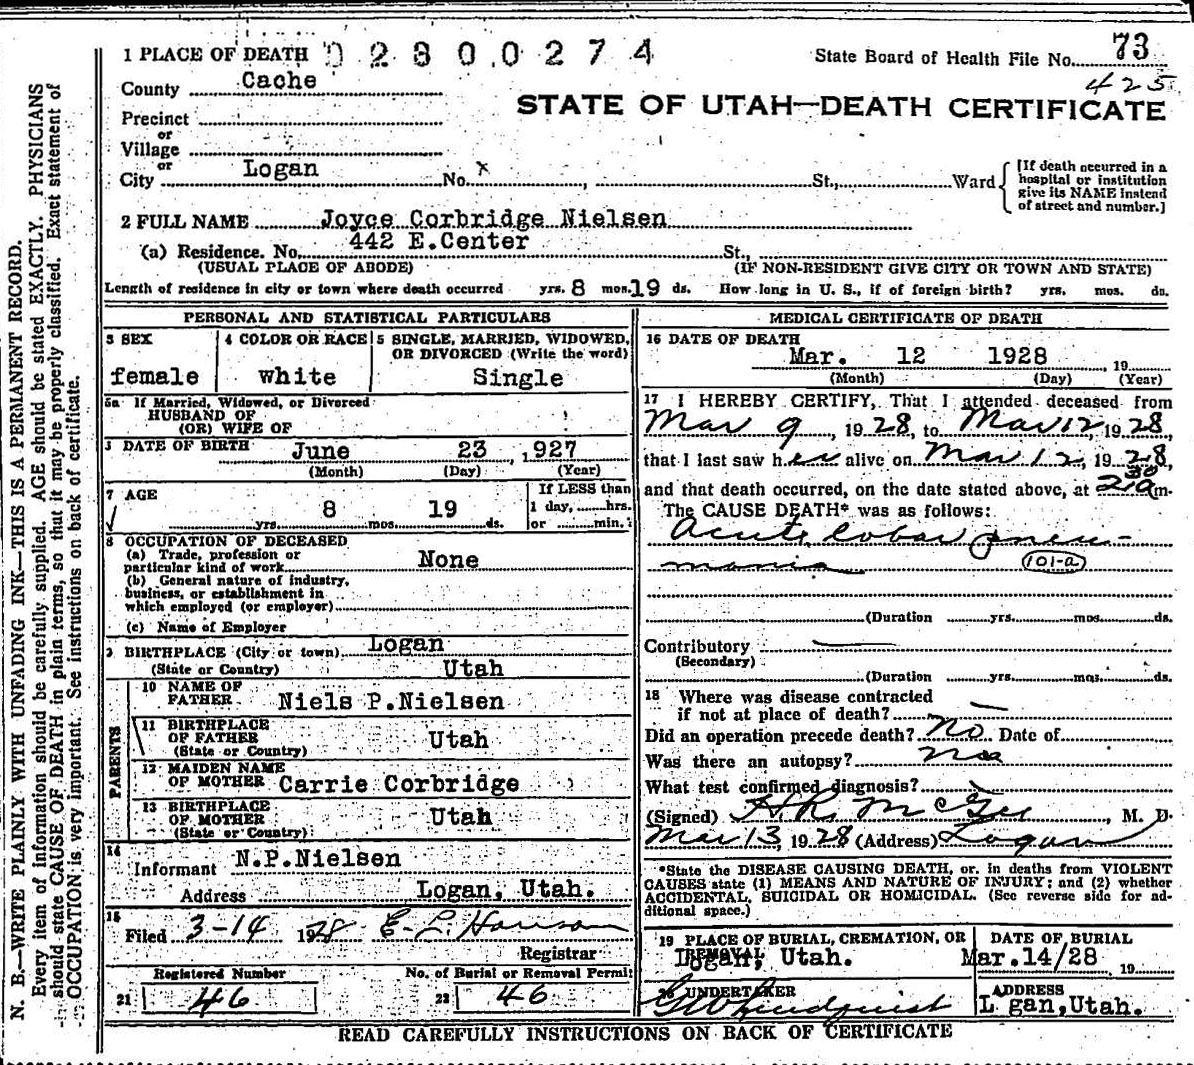 1 PLACE OF DEATH 02800274
State Board of Health File No. 73
425
County Cache
STATE OF UTAH—DEATH CERTIFICATE
Precinct
or
Village
or
City Logan No. x St., Ward
[If death occurred in a hospital or institution give its NAME instead of street and number.]
2 FULL NAME Joyce Corbridge Nielsen
(a) Residence. No. 442 E.Center St.,
(USUAL PLACE OF ABODE) (IF NON-RESIDENT GIVE CITY OR TOWN AND STATE)
Length of residence in city or town where death occurred yrs. 8 mos. 19 ds. How long in U. S., if of foreign birth? yrs. mos. ds.
PERSONAL AND STATISTICAL PARTICULARS
3 SEX
female
4 COLOR OR RACE
white
5 SINGLE, MARRIED, WIDOWED, OR DIVORCED (Write the word)
Single
5a If Married, Widowed, or Divorced
HUSBAND OF
(OR) WIFE OF
DATE OF BIRTH June 23 , 927
(Month) (Day) (Year)
7 AGE
8 19
yrs. mos. ds.
If LESS than
1 day, hrs.
or min.
8 OCCUPATION OF DECEASED
(a) Trade, profession or
particular kind of work None
(b) General nature of industry,
business, or establishment in
which employed (or employer)
(c) Name of Employer
9 BIRTHPLACE (City or town) Logan
(State or Country) Utah
PARENTS
10 NAME OF
FATHER Niels P.Nielsen
11 BIRTHPLACE
OF FATHER Utah
(State or Country)
12 MAIDEN NAME
OF MOTHER Carrie Corbridge
13 BIRTHPLACE
OF MOTHER Utah
(State or Country)
14
Informant N.P.Nielsen
Address Logan, Utah.
15
Filed 3-14 1928 E. L. Hanson
Registrar
Registered Number No. of Burial or Removal Permit
21 46 22 46
MEDICAL CERTIFICATE OF DEATH
16 DATE OF DEATH
Mar. 12 1928 , 19
(Month) (Day) (Year)
17 I HEREBY CERTIFY, That I attended deceased from
Mar 9 , 1928, to Mar 12, 1928,
that I last saw her alive on Mar 12, 1928,
and that death occurred, on the date stated above, at 2 30 am.
The CAUSE DEATH* was as follows:
Acute lobar pneu-
monia 101-a
(Duration yrs. mos. ds.
Contributory
(Secondary)
(Duration yrs. mos. ds.
18 Where was disease contracted
if not at place of death?
Did an operation precede death? No Date of
Was there an autopsy? no
What test confirmed diagnosis?
(Signed) H. R. McGee, M. D.
Mar 13, 1928 (Address) Logan
*State the DISEASE CAUSING DEATH, or, in deaths from VIOLENT
CAUSES state (1) MEANS AND NATURE OF INJURY; and (2) whether
ACCIDENTAL, SUICIDAL OR HOMICIDAL. (See reverse side for ad-
ditional space.)
19 PLACE OF BURIAL, CREMATION, OR
REMOVAL
Logan, Utah.
DATE OF BURIAL
Mar.14/28 19
20 UNDERTAKER
Lindquist
ADDRESS
L gan,Utah.
READ CAREFULLY INSTRUCTIONS ON BACK OF CERTIFICATE
N. B.—WRITE PLAINLY WITH UNFADING INK—THIS IS A PERMANENT RECORD.
Every item of information should be carefully supplied. AGE should be stated EXACTLY. PHYSICIANS
should state CAUSE OF DEATH in plain terms, so that it may be properly classified. Exact statement of
OCCUPATION is very important. See instructions on back of certificate.